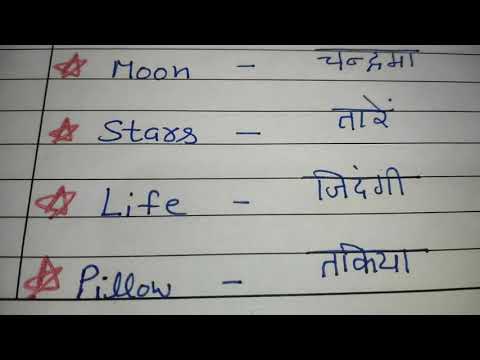 Moon - चन्द्रमा
Stars - तारें
Life - जिदंगी
Pillow - तकिया